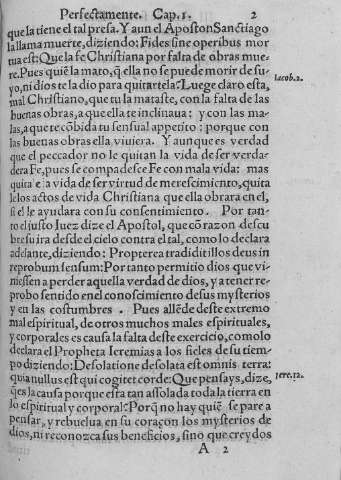 Perfectamente. Cap. 1. 2
que la tiene el tal presa. Y aun el Apostol Sanctiago
la llama muerte, diziendo: Fides sine operibus mor
tua est: Que la fe Christiana por falta de obras mue-
re. Pues quiē la mato, q̄ ella no se puede morir de su-
yo, ni dios te la dio para quitartela? Luego claro esta,
mal Christiano, que tu la mataste, con la falta de las
buenas obras, a que ella te inclinaua: y con las ma-
las, a que te cōbida tu sensual appetito: porque con
las buenas obras ella viuiera. Y aunque es verdad
que el peccador no le quitan la vida de ser verda-
dera Fe, pues se compadesce Fe con mala vida: mas
quitale la vida de ser virtud de merescimiento, quita
le los actos de vida Christiana que ella obrara en el,
si el le ayudara con su consentimiento. Por tan-
to el justo Iuez dize el Apostol, que cō razon descu
bre su ira desde el cielo contra el tal, como lo declara
adelante, diziendo: Propterea tradidit illos deus in
reprobum sensum: Por tanto permitio dios que vi-
niessen a perder aquella verdad de dios, y a tener re-
probo sentido en el conoscimiento de sus mysterios
y en las costumbres. Pues allēde deste extremo
mal espiritual, de otros muchos males espirituales,
y corporales es causa la falta deste exercicio, como lo
declara el Propheta Ieremias a los fieles de su tiem-
po diziendo: Desolatione desolata est omnis terra:
quia nullus est qui cogitet corde: Que pensays, dize,
q̄ es la causa porque esta tan assolada toda la tierra en
lo espiritual y corporal? Porq̄ no hay quiē se pare a
pensar, y rebuelua en su coraçon los mysterios de
dios, ni reconozca sus beneficios, sino que creydos
A 2
Iacob. 2.
Iere. 12.